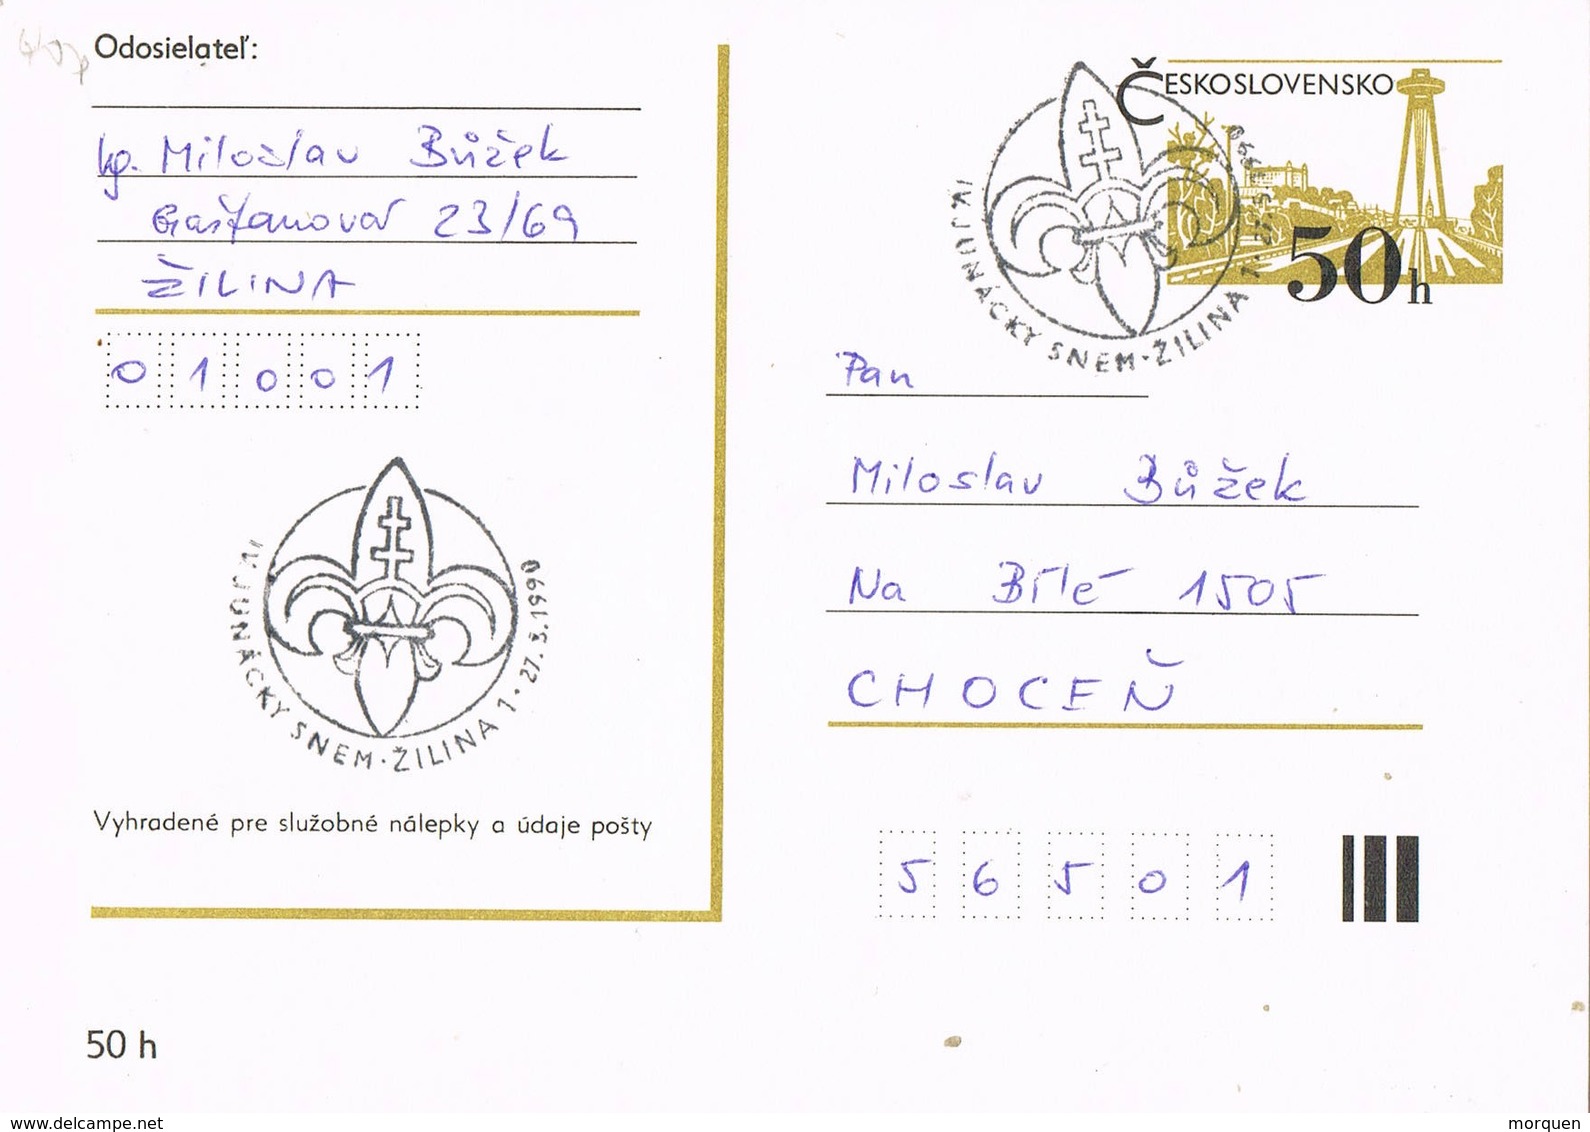 Odosielateľ:
kp. Miloslav Bůžek
Gaštanová 23/69
ŽILINA
01001
IV. JUNÁCKY SNEM · ŽILINA 1 · 27.3.1990
Vyhradené pre služobné nálepky a údaje pošty
50 h
ČESKOSLOVENSKO
50h
IV. JUNÁCKY SNEM · ŽILINA 1 · 27.3.1990
Pan
Miloslav Bůžek
Na Bílé 1505
CHOCEŇ
56501
www.delcampe.net
morquen